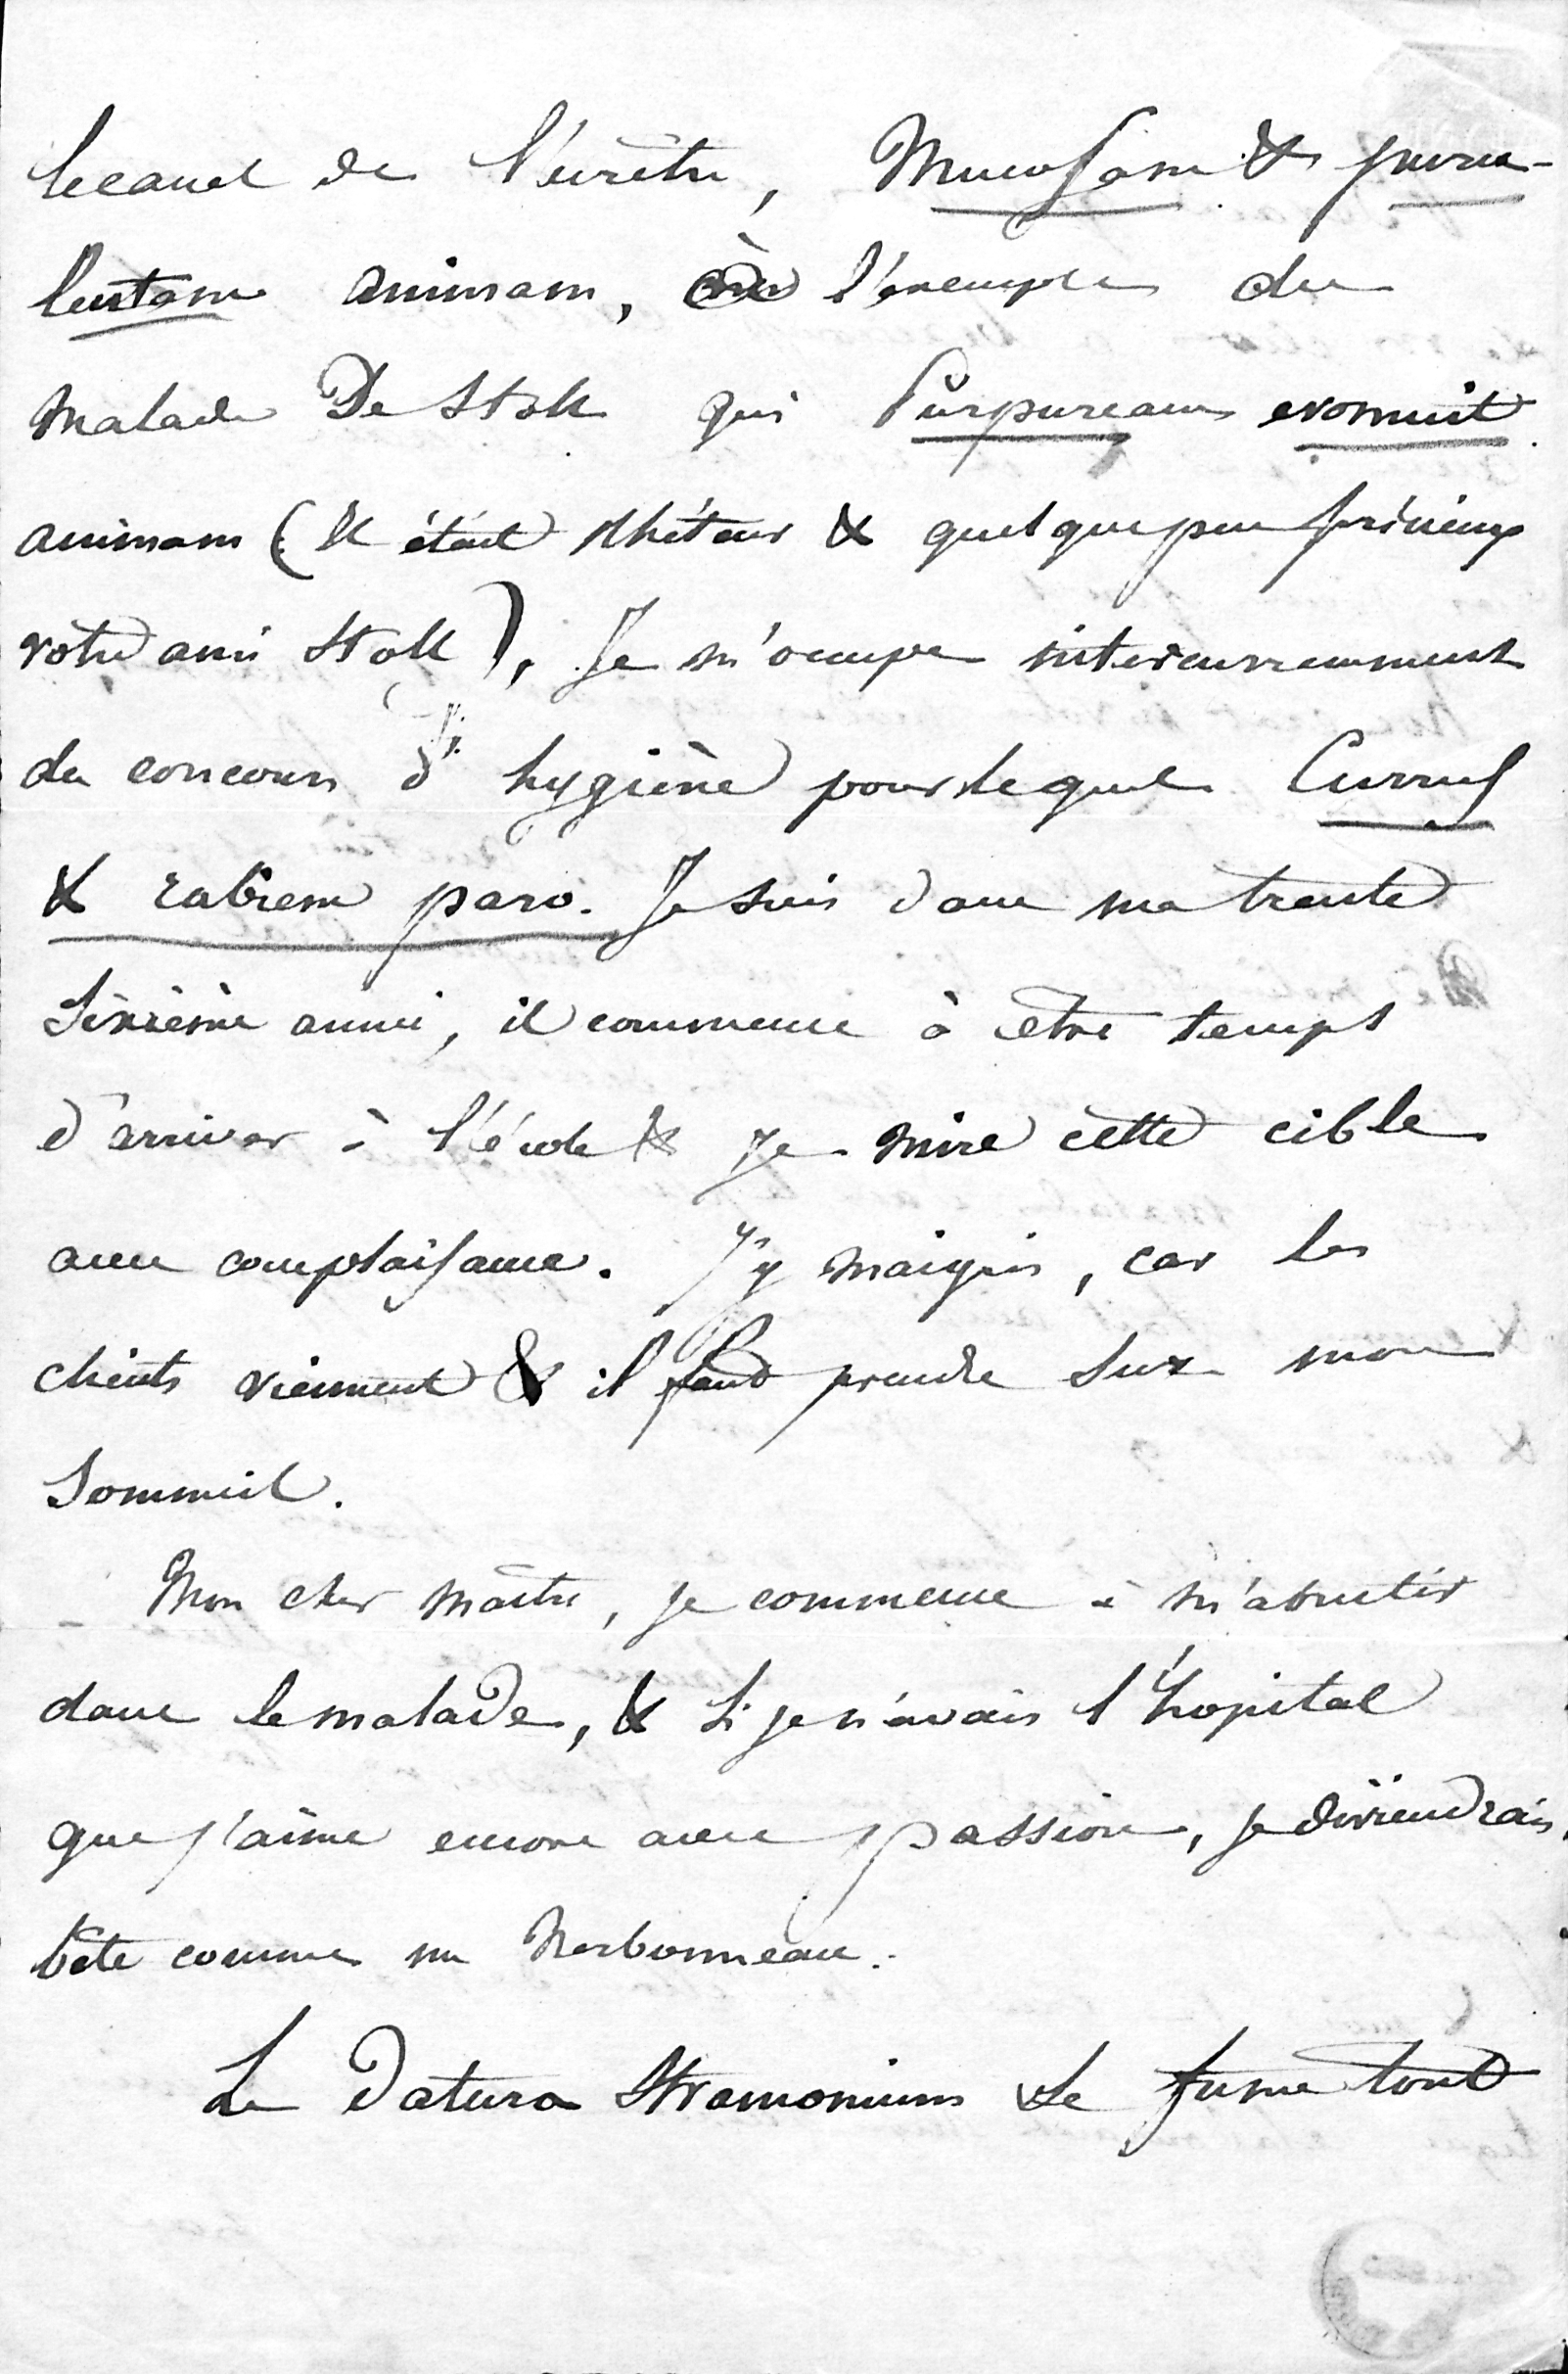 le canal de l'urètre, Mucosam & puru-
lentam animam, à l'exemple du
malade De Stoll qui Purpuream evomuit
animam (Il était Rhéteur & quelque peu précieux
votre ami Stoll). Je m'occupe intercurremment
du concours d'hygiène pour lequel Currus
& rabiem paro. Je suis dans ma trente
Sixième année, il commence à être temps
d'arriver à l'école & Je mire cette cible
avec complaisance. J'y maigris, car les
clients viennent & il faut prendre sur mon
Sommeil.
Mon cher maître, je commence à m'abrutir
dans le malade, & Si je n'avais l'hopital
que j'aime encore avec passion, je deviendrais
bête comme un Narbonneau.
Le Datura Stramonium Se fume tout